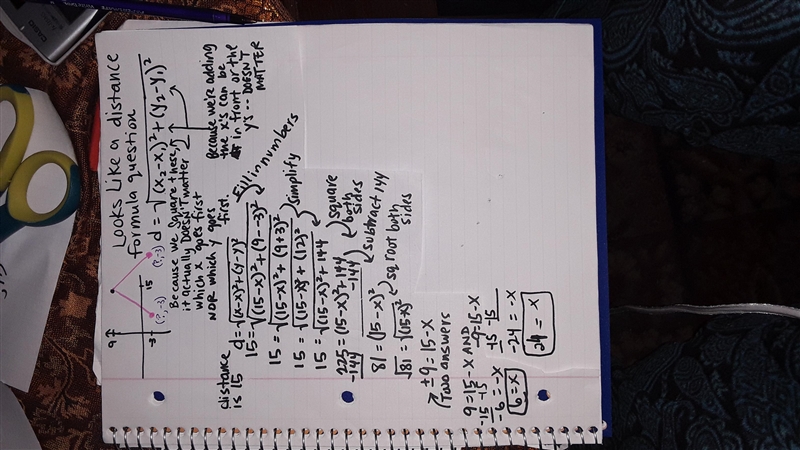 Looks Like a distance
formula question
9
15
-3
(?,-3)
(?,-3)
d = √(x₂-x₁)²+(y₂-y₁)²
Because we square these,
it actually DOESN'T matter
which x goes first
NOR which y goes
first.
Because we're adding
the x's can be
in front or the
y's -- DOESN'T
MATTER
distance
is 15
d=√(x-x)²+(y-y)²
fill in numbers
15=√(15-x)²+(9--3)²
15=√(15-x)²+(9+3)²
simplify
15=√(15-x)²+(12)²
15=√(15-x)²+144
square
both
sides
225=(15-x)²+144
-144 -144
subtract 144
81=(15-x)²
sq root both
sides
√81=√(15-x)²
±9=15-x
Two answers
9=15-x AND
-15 -15
-6=-x
6=x
-9=15-x
-15 -15
-24=-x
24=x
CASIO